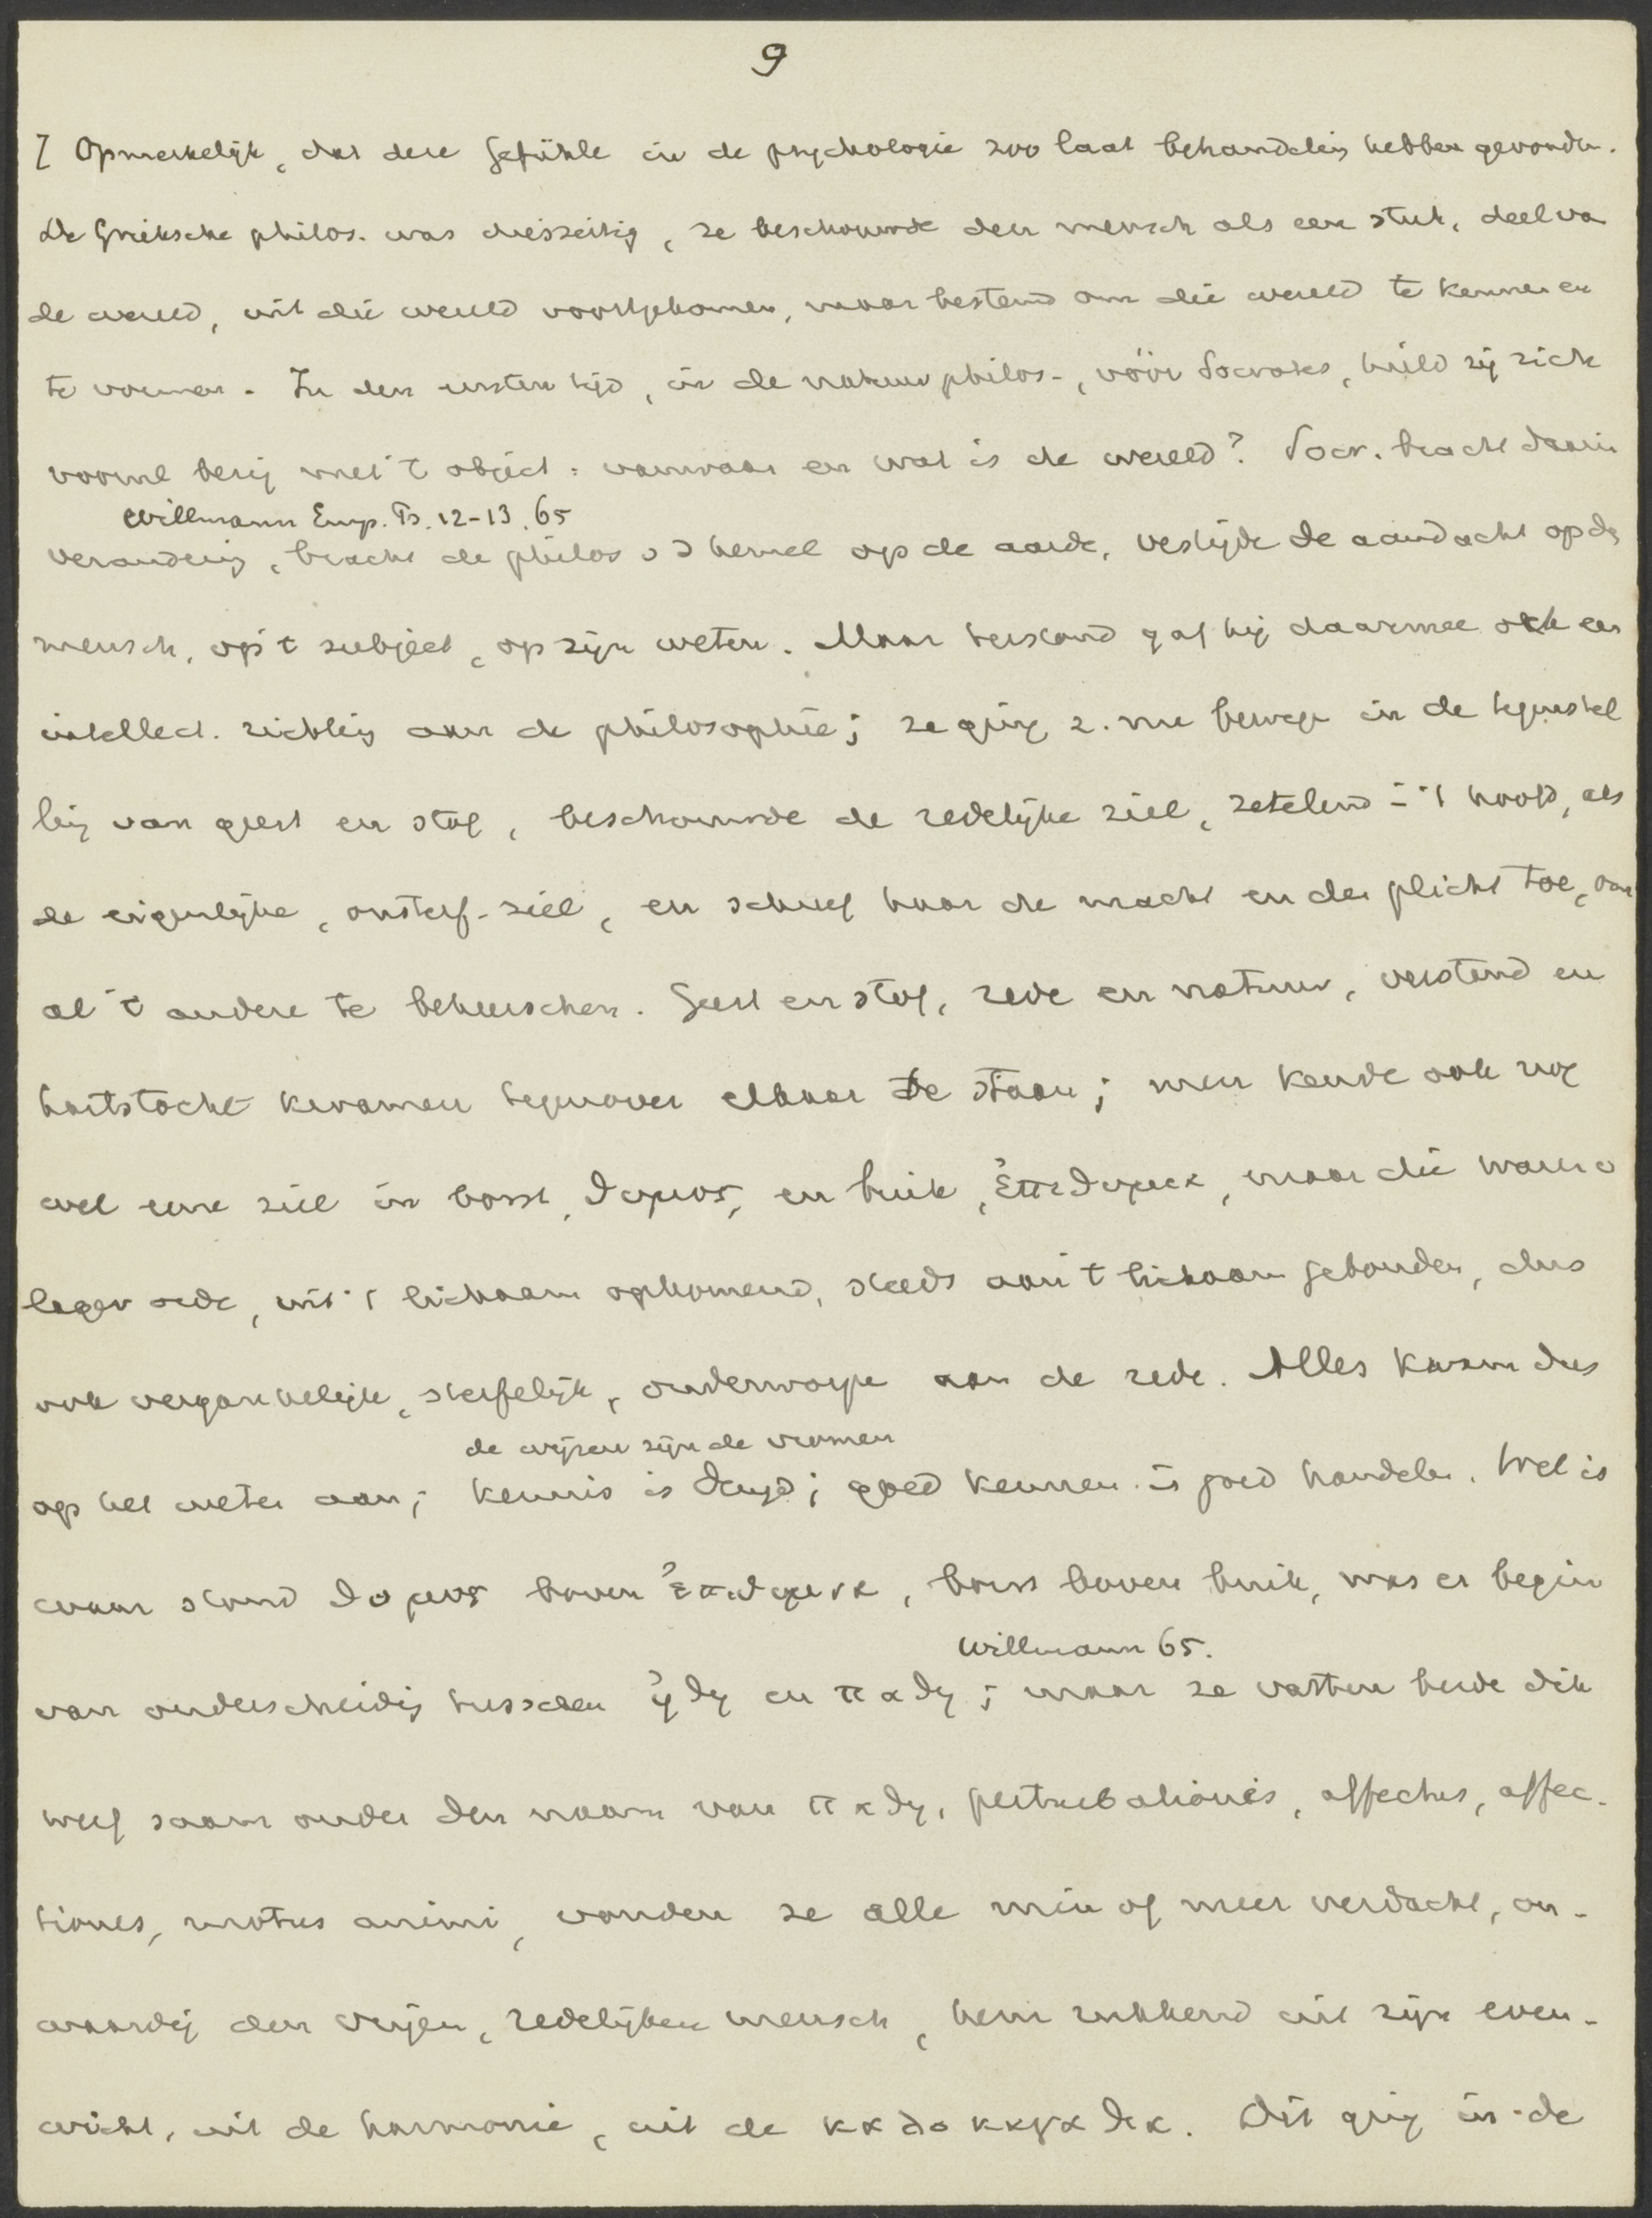 9
[ Opmerkelijk, dat deze Gefühle in de psychologie zoo laat behandeling hebben gevonden.
De Grieksche philos. was diesseitig, ze beschouwde den mensch als een stuk, deel va
de wereld, uit die wereld voortgekomen, maar bestemd om die wereld te kennen en
te vormen. In den eersten tijd, in de natuurphilos., vóór Socrates, hield zij zich
voornl bezig met 't object: vanwaar en wat is de wereld? Socr. bracht daarin
Willmann Emp. Ps. 12-13. 65
verandering, bracht de philos v d hemel op de aarde, vestigde de aandacht op de
mensch, op 't subject, op zijn weten. Maar terstond gaf hij daarmee ook een
intellect. richting aan de philosophie; ze ging z. nu bewegen in de tegenstel
ling van geest en stof, beschouwde de redelijke ziel, zetelend in 't hoofd, als
de eigenlijke, onsterf. ziel, en schreef haar de macht en den plicht toe, om
al 't andere te beheerschen. Geest en stof, rede en natuur, verstand en
hartstocht kwamen tegenover elkaar te staan; men kende ook nog
wel eene ziel in borst, θυμος, en buik, ἐπιθυμια, maar die waren v
lager orde, uit 't lichaam opkomend, steeds aan 't lichaam gebonden, dus
ook vergankelijk, sterfelijk, onderworpen aan de rede. Alles kwam dus
de wijzen zijn de vromen
op het weten aan; kennis is deugd; goed kennen is goed handelen. Wel is
waar stond θυμος boven ἐπιθυμια, borst boven buik, was er begin
Willmann 65.
van onderscheiding tusschen ἠθη en παθη; maar ze vatten beide dik
werf saam onder den naam van παθη, perturbationes, affectus, affec-
tiones, motus animi, vonden ze alle min of meer verdacht, on-
waardig den wijzen, redelijken mensch, hem rukkend uit zijn even-
wicht, uit de harmonie, uit de καλοκαγαθια. Dit ging in de